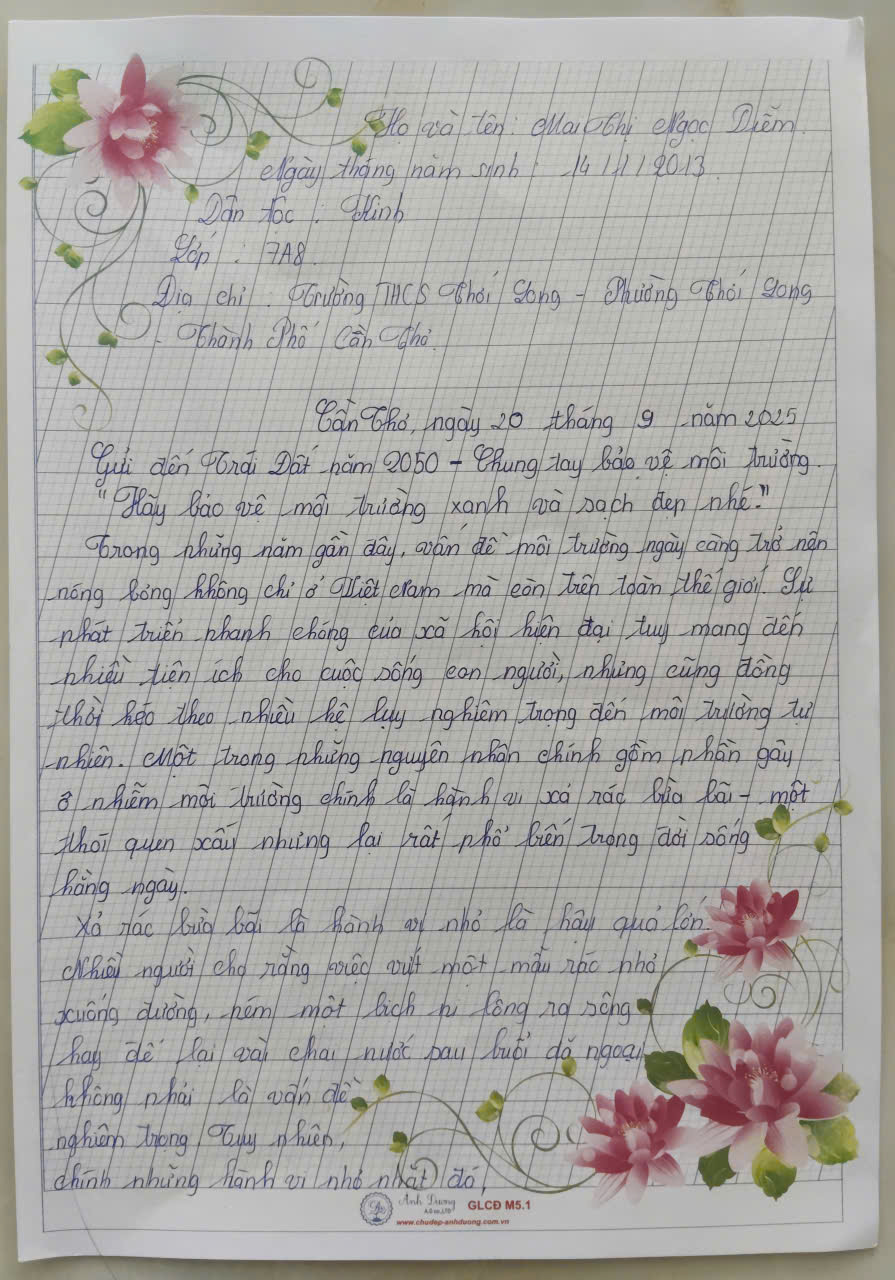 Họ và tên: Mai Thị Ngọc Diễm.
Ngày tháng năm sinh: 14/1/2013.
Dân tộc: Kinh
Lớp: 7A8.
Địa chỉ: Trường THCS Thới Long - Phường Thới Long
- Thành Phố Cần Thơ.
Cần Thơ, ngày 20 tháng 9 năm 2025
Gửi đến Trái Đất năm 2050 - Chung tay bảo vệ môi trường.
"Hãy bảo vệ môi trường xanh và sạch đẹp nhé."
Trong những năm gần đây, vấn đề môi trường ngày càng trở nên
nóng bỏng không chỉ ở Việt Nam mà còn trên toàn thế giới. Sự
phát triển nhanh chóng của xã hội hiện đại tuy mang đến
nhiều tiện ích cho cuộc sống con người, nhưng cũng đồng
thời kéo theo nhiều hệ lụy nghiêm trọng đến môi trường tự
nhiên. Một trong những nguyên nhân chính gồm phần gây
ô nhiễm môi trường chính là hành vi xả rác bừa bãi - một
thói quen xấu nhưng lại rất phổ biến trong đời sống
hằng ngày.
Xả rác bừa bãi là hành vi nhỏ là hậu quả lớn.
Nhiều người cho rằng việc vứt một mẫu rác nhỏ
xuống đường, ném một bịch ni lông ra sông
hay để lại vài chai nước sau buổi dã ngoại
không phải là vấn đề
nghiêm trọng. Tuy nhiên,
chính những hành vi nhỏ nhặt đó,
Anh Dương
A.D co.,LTD
GLCĐ M5.1
www.chudep-anhduong.com.vn